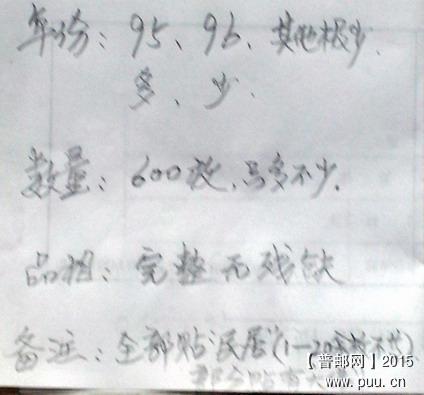 年份：95、96、其他根少.
多、少.
数量：600枚,只多不少.
品相：完整无残缺
备注：全部贴“民居”(1—20
【普邮网】2015
www.puu.cn